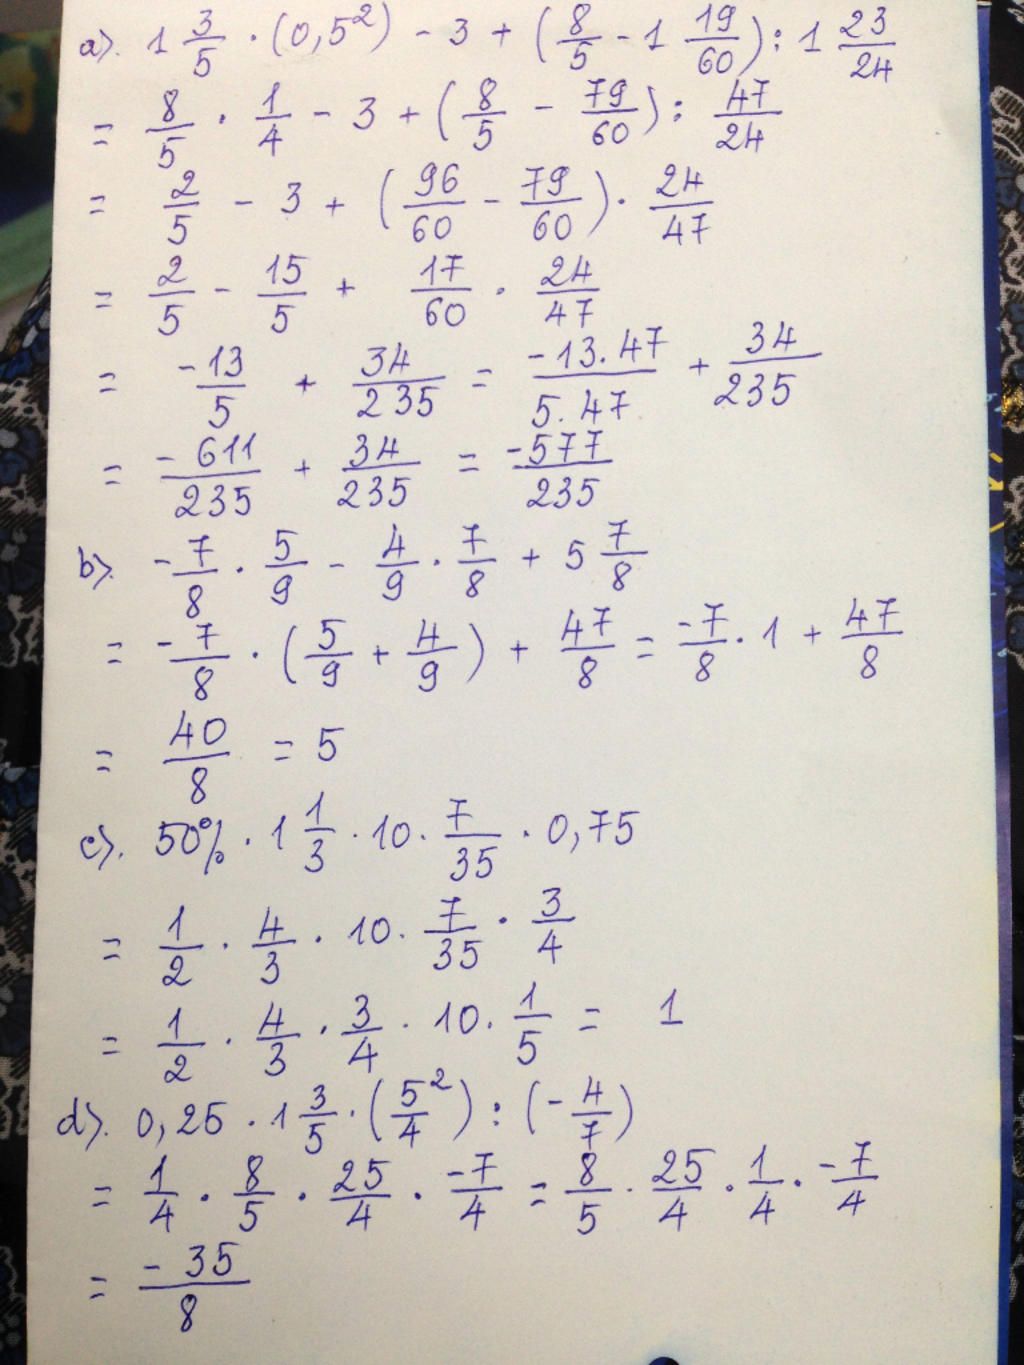 a). 1 3/5 · (0,5²) - 3 + (8/5 - 1 19/60) : 1 23/24
= 8/5 · 1/4 - 3 + (8/5 - 79/60) : 47/24
= 2/5 - 3 + (96/60 - 79/60) · 24/47
= 2/5 - 15/5 + 17/60 · 24/47
= -13/5 + 34/235 = -13.47/5.47 + 34/235
= -611/235 + 34/235 = -577/235
b). -7/8 · 5/9 - 4/9 · 7/8 + 5 7/8
= -7/8 · (5/9 + 4/9) + 47/8 = -7/8 · 1 + 47/8
= 40/8 = 5
c). 50% · 1 1/3 · 10 · 7/35 · 0,75
= 1/2 · 4/3 · 10 · 7/35 · 3/4
= 1/2 · 4/3 · 3/4 · 10 · 1/5 = 1
d). 0,25 · 1 3/5 · (5²/4) : (-4/7)
= 1/4 · 8/5 · 25/4 · -7/4 = 8/5 · 25/4 · 1/4 · -7/4
= -35/8